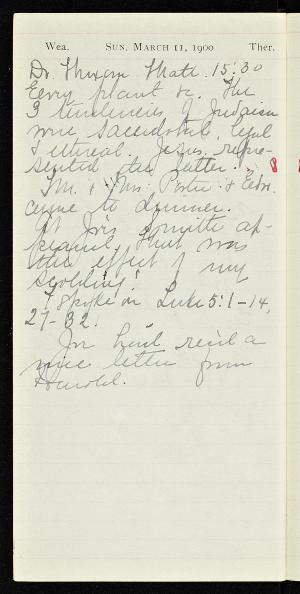 Wea. SUN. MARCH 11, 1900 Ther.
Dr. Matt. 15:30
Every plant &c. The
3 tendencies of Judaism
were sacerdotal, legal
& ethereal. Jesus repre-
sented the latter.
Mr. & Mrs. Porter & Edw.
came to dinner.
At Jos's
that was
the effect of my
scolding!
I spoke on Luke 5:1-14,
27-32.
Jos had rec'd a
nice letter from
Harold.